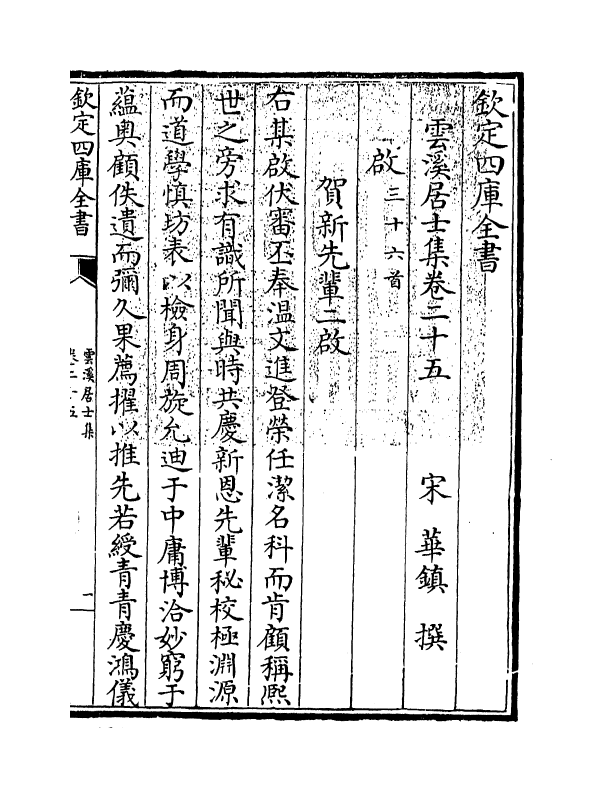 欽定四庫全書
雲溪居士集卷二十五
宋 華鎮 撰
啟三十六首
賀新先輩二啟
右某啟伏審丕奉溫文進登榮任潔名科而肯顧稱熙
世之旁求有識所聞與時共慶新恩先輩秘校極淵源
而道學慎坊表以檢身周旋允迪于中庸博洽妙窮于
蘊奧顧佚遺而彌久果薦擢以推先若綬青青慶鴻儀
欽定四庫全書
雲溪居士集
卷二十五
一